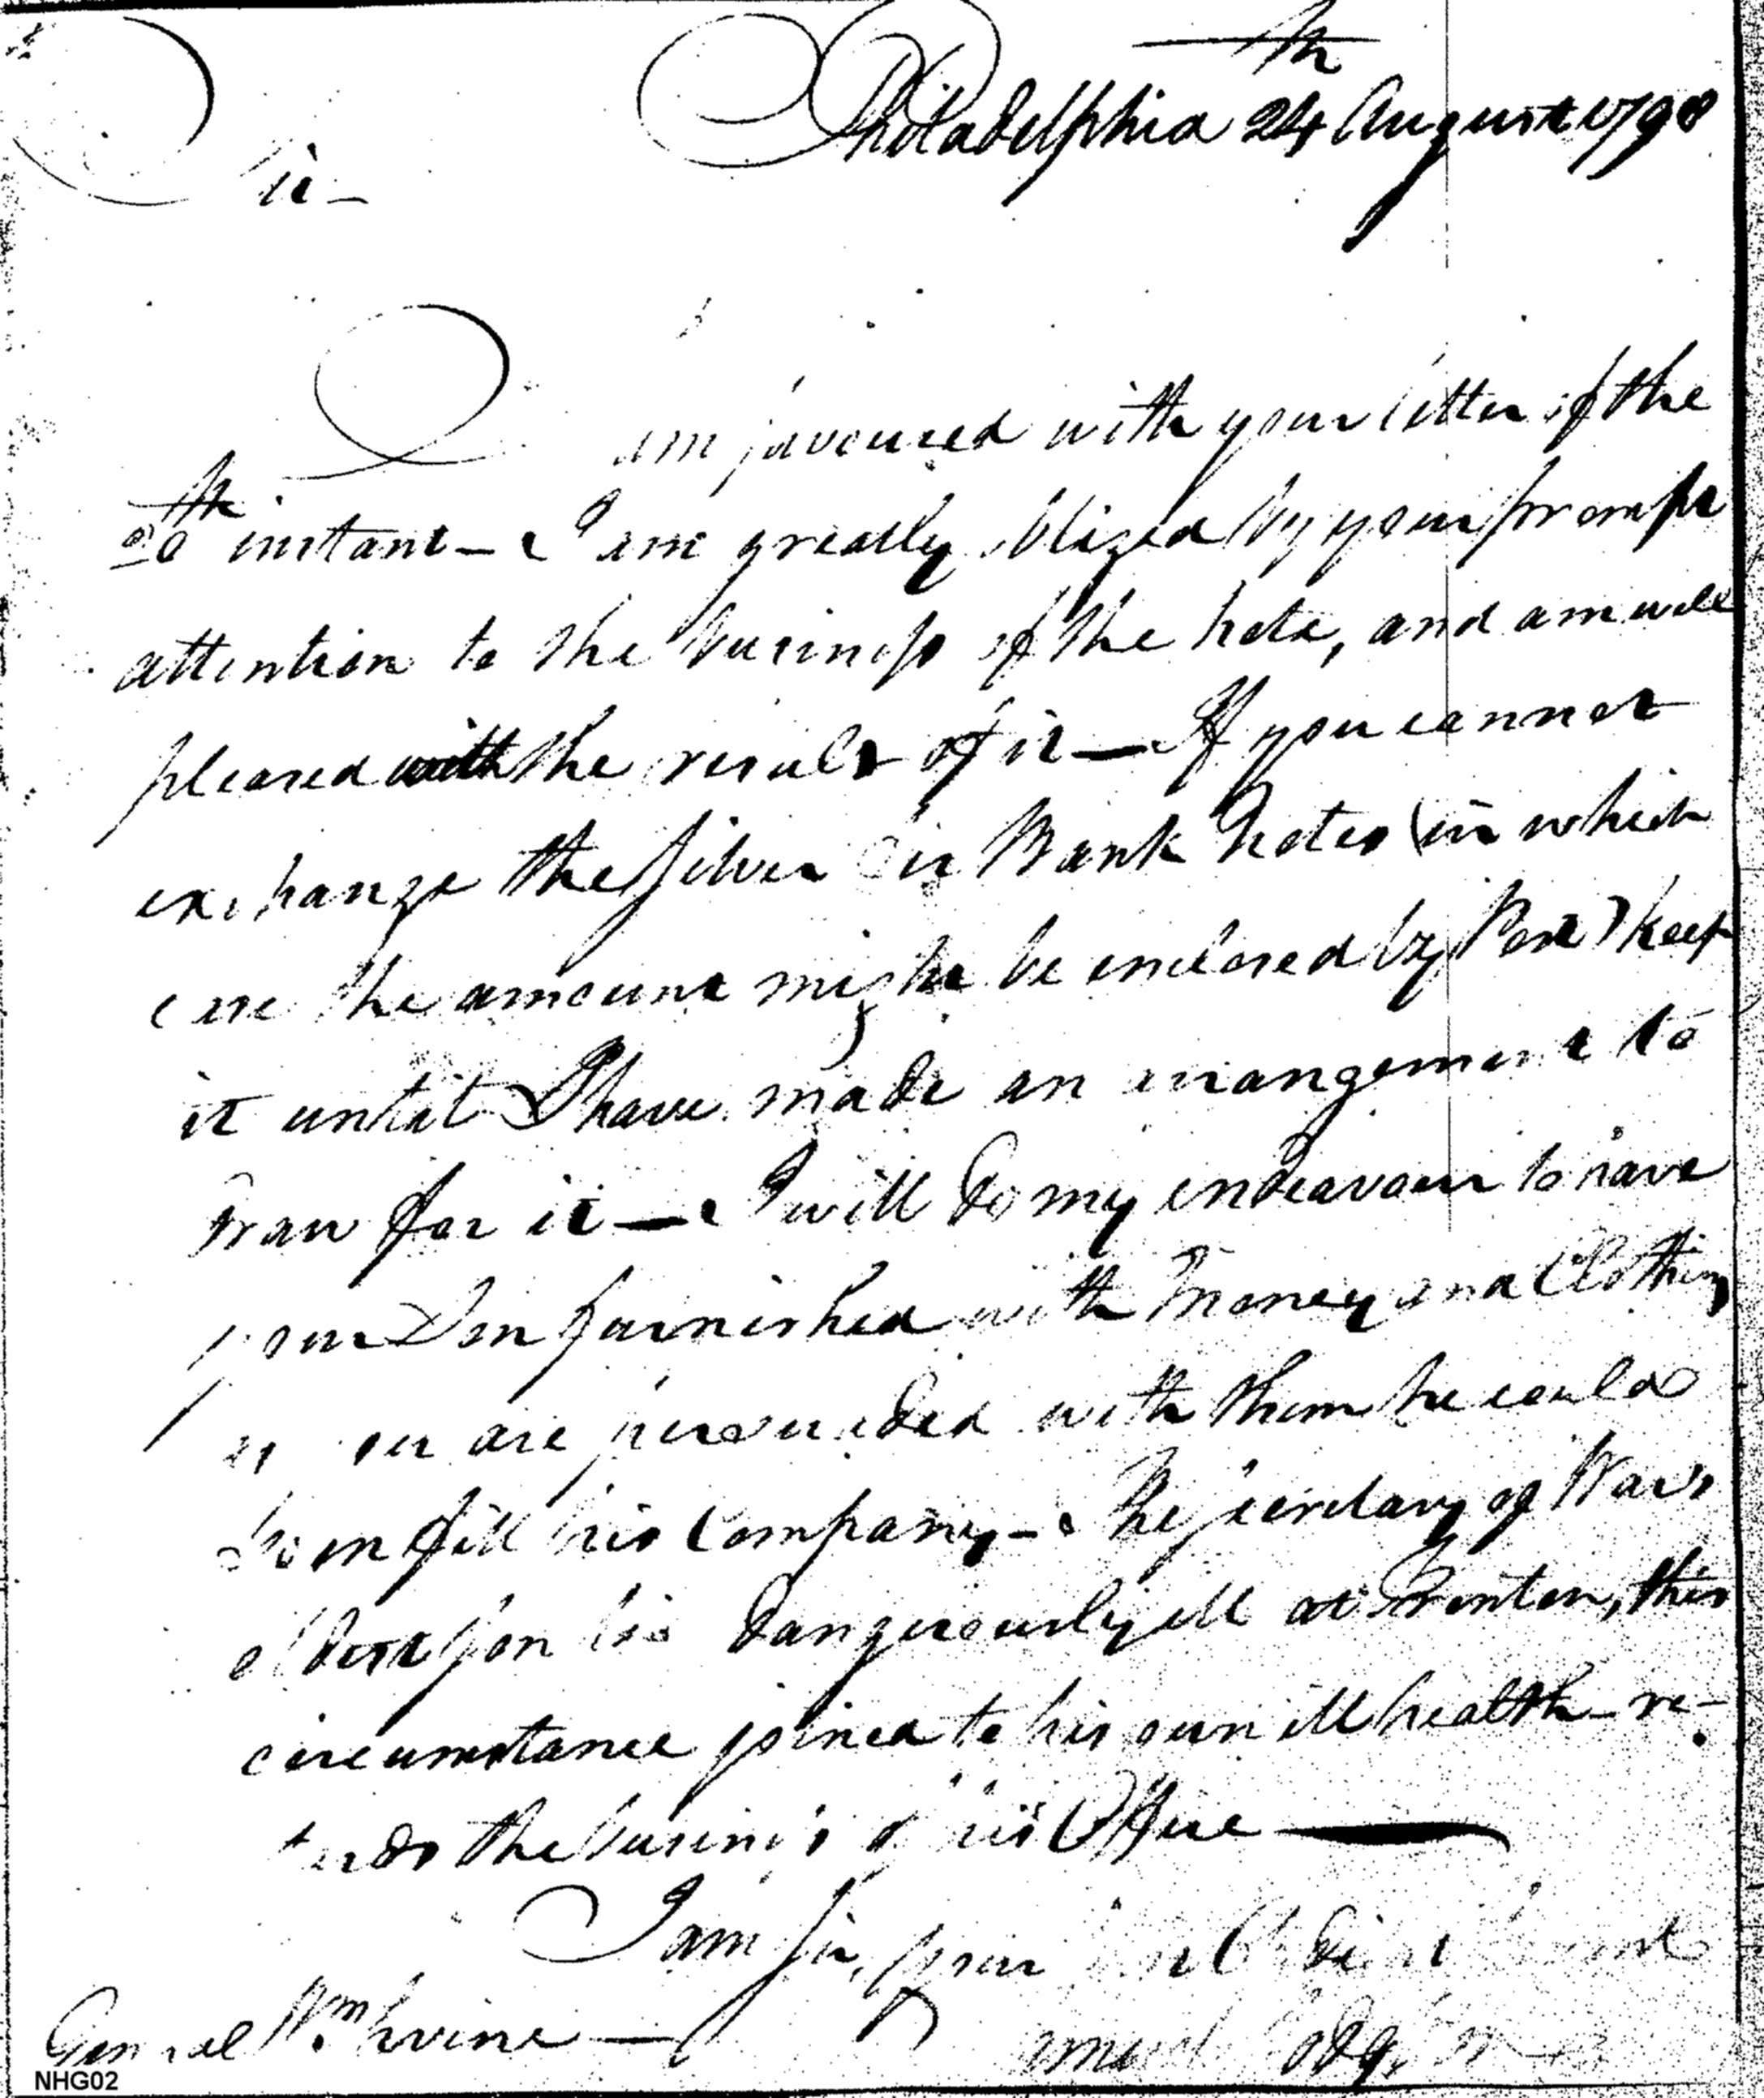 Philadelphia 24th August 1798
Sir
I am favoured with your letter of the
20th instant — I am greatly oblized by your prompt
attention to the business of the note, and am well
pleased with the result of it — If you cannot
exchange the Silver for Bank Notes (in which
case the amount might be enclosed by Post) keep
it until I have made an arrangement to
draw for it — I will do my endeavour to have
your Son furnished with Money and Clothing
as you are persuaded with them he could
soon fill his Company — The Secretary of War's
oldest Son is dangerously ill at Trenton, this
circumstance joined to his own ill health re-
tards the business of his Office
I am Sir, your obedient Servant
General Wm. Irvine — Samuel Hodgdon
NHG02